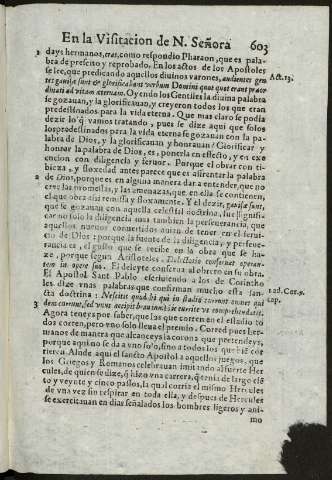 En la Visitacion de N. Señora 603
days hermanos, cras, como respondio Pharaon, que es pala-
bra de prescito y reprobado. En los actos de los Apostoles
se lee, que predicando aquellos divinos varones, audientes gen Act. 13.
tes gavisæ sunt & glorificabant verbum Domini quot quot erant præor
dinati ad vitam æternam. Oyendo los Gentiles la diuina palabra
se gozauan, y la glorificauan, y creyeron todos los que eran
predestinados para la vida eterna. Que mas claro se podia
dezir lo q̃ vamos tratando, pues se dize aqui que solos
los predestinados para la vida eterna se gozauan con la pa
labra de Dios, y la glorificauan y honrauan? Glorificar y
honrar la palabra de Dios, es, ponerla en effecto, y en exe
cucion con diligencia y feruor. Porque el obrar con ti-
bieza, y floxedad antes parece que es afrentar la palabra
2 de Dios, porque es en alguna manera dar a entender, que no
cree las promessas, y las amenazas, que en ella se contienen,
el que obra assi remissa y floxamente. Y el dezir, gavisæ sunt,
que se gozauan con aquella celestial doctrina, fue significar
car no solo la diligencia mas tambien la perseuerancia, que
aquellos nueuos conuertidos auian de tener en el serui-
cio de Dios: porque la fuente de la diligencia, y perseue-
rancia es, el gusto que se recibe en la obra que se ha-
ze, porque segun Aristoteles. Delectatio conseruat operan-
tem in opere suo. El deleyte conserua al obrero en su obra.
El Apostol Sant Pablo escriuiendo a los de Corintho
les dize vnas palabras que confirman mucho esta san-
cta doctrina: Nescitis quod hi qui in stadio currunt omnes qui 1. ad. Cor. 9.
3 dem currunt, sed vnus accipit brauium? sic currite vt comprehendatis. cap.
Agora teneys por saber, que las que corren en el estadio to
dos corren, pero vno solo lleua el premio. Corred pues her-
manos de manera que alcanceys la corona que pretendeys,
porque aqui no se da a vno solo, sino a todos los que biẽ cor
rieren. Alude aqui el sancto Apostol a aquellos juegos, que
los Griegos y Romanos celebrauan imitando al fuerte Her
cules, de quien se dize, q̃ hizo vna carrera, q̃ tenia de largo ciẽ
to y veynte y cinco passos, la qual corria el mismo Hercules
de vna vez sin respirar en toda ella, y despues de Hercules
se exercitauan en dias señalados los hombres ligeros y ani-
mo